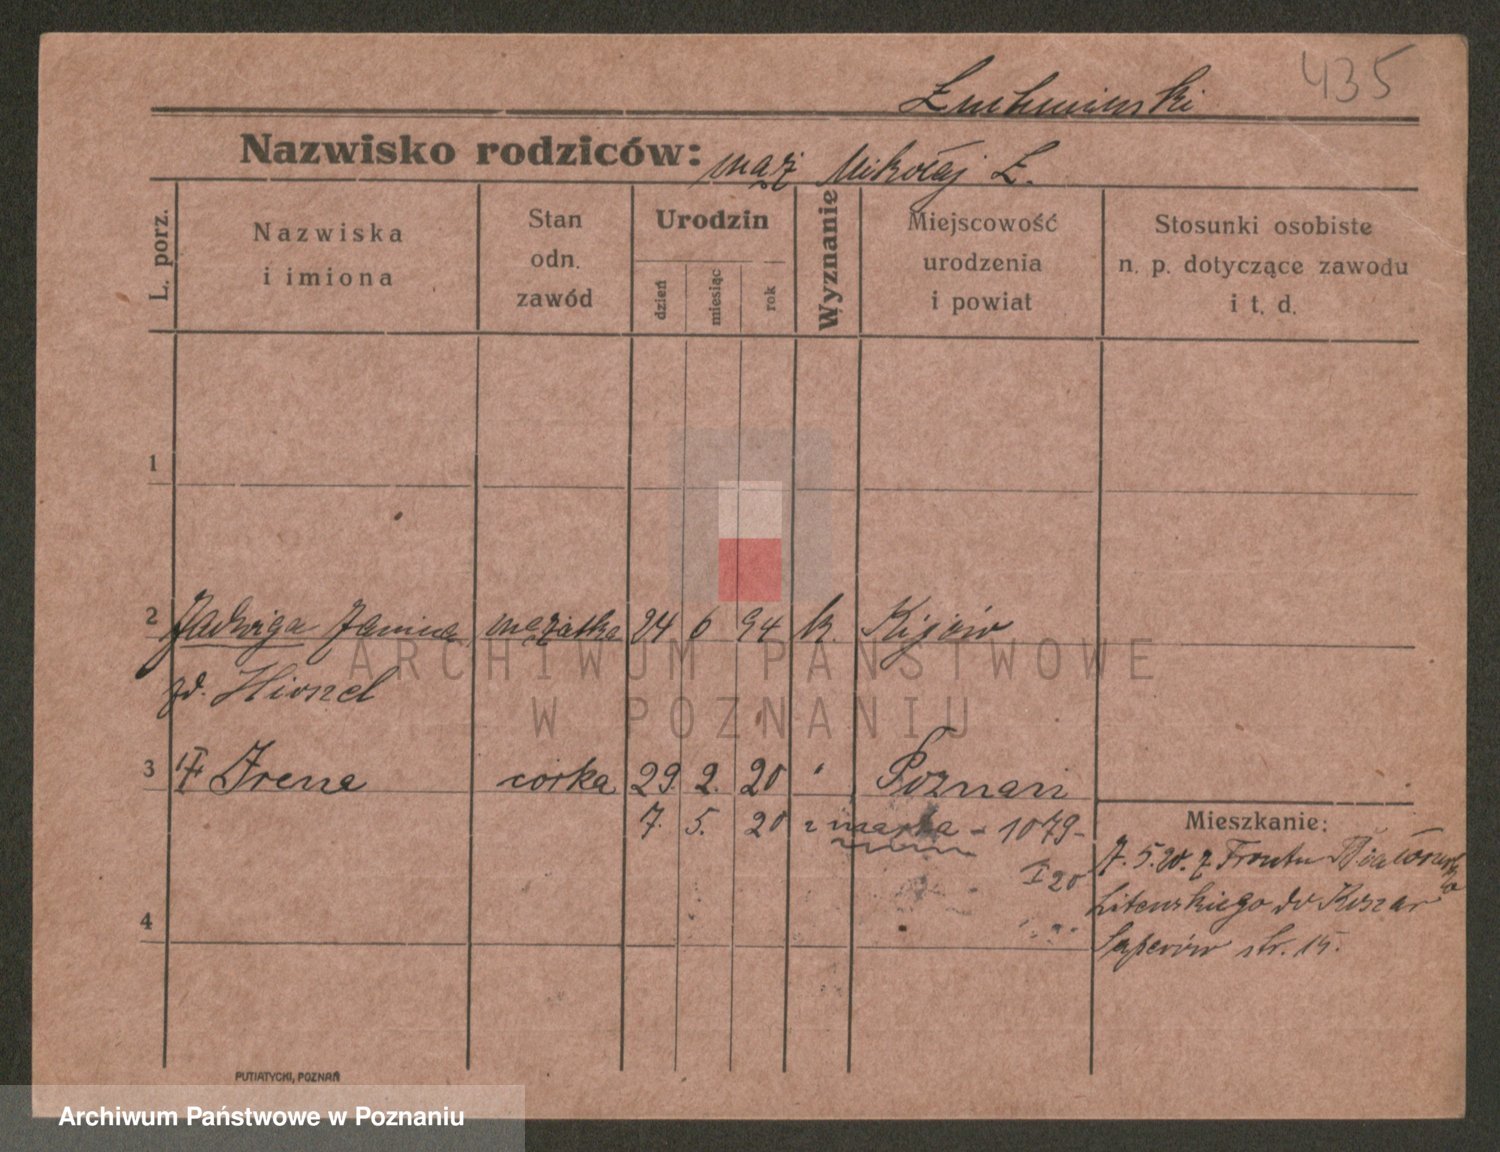 435
Nazwisko rodziców: mąż Mikołaj Ł.
L. porz.
Nazwiska i imiona
Stan odn. zawód
Urodzin
dzień miesiąc rok
Wyznanie
Miejscowość urodzenia i powiat
Stosunki osobiste n. p. dotyczące zawodu i t. d.
1
2 Jadwiga Janina mężatka 24 6 94 k. Kijów
ARCHIWUM PAŃSTWOWE
zd.
W POZNANIU
3 Irena córka 29. 2. 20 " Poznań
7. 5. 20 z marka - 1079-
I 20
Mieszkanie:
7. 5. 20. z Frontu
Litewskiego do Koszar
Saperów str. 15.
4
PUTIATYCKI, POZNAŃ
Archiwum Państwowe w Poznaniu